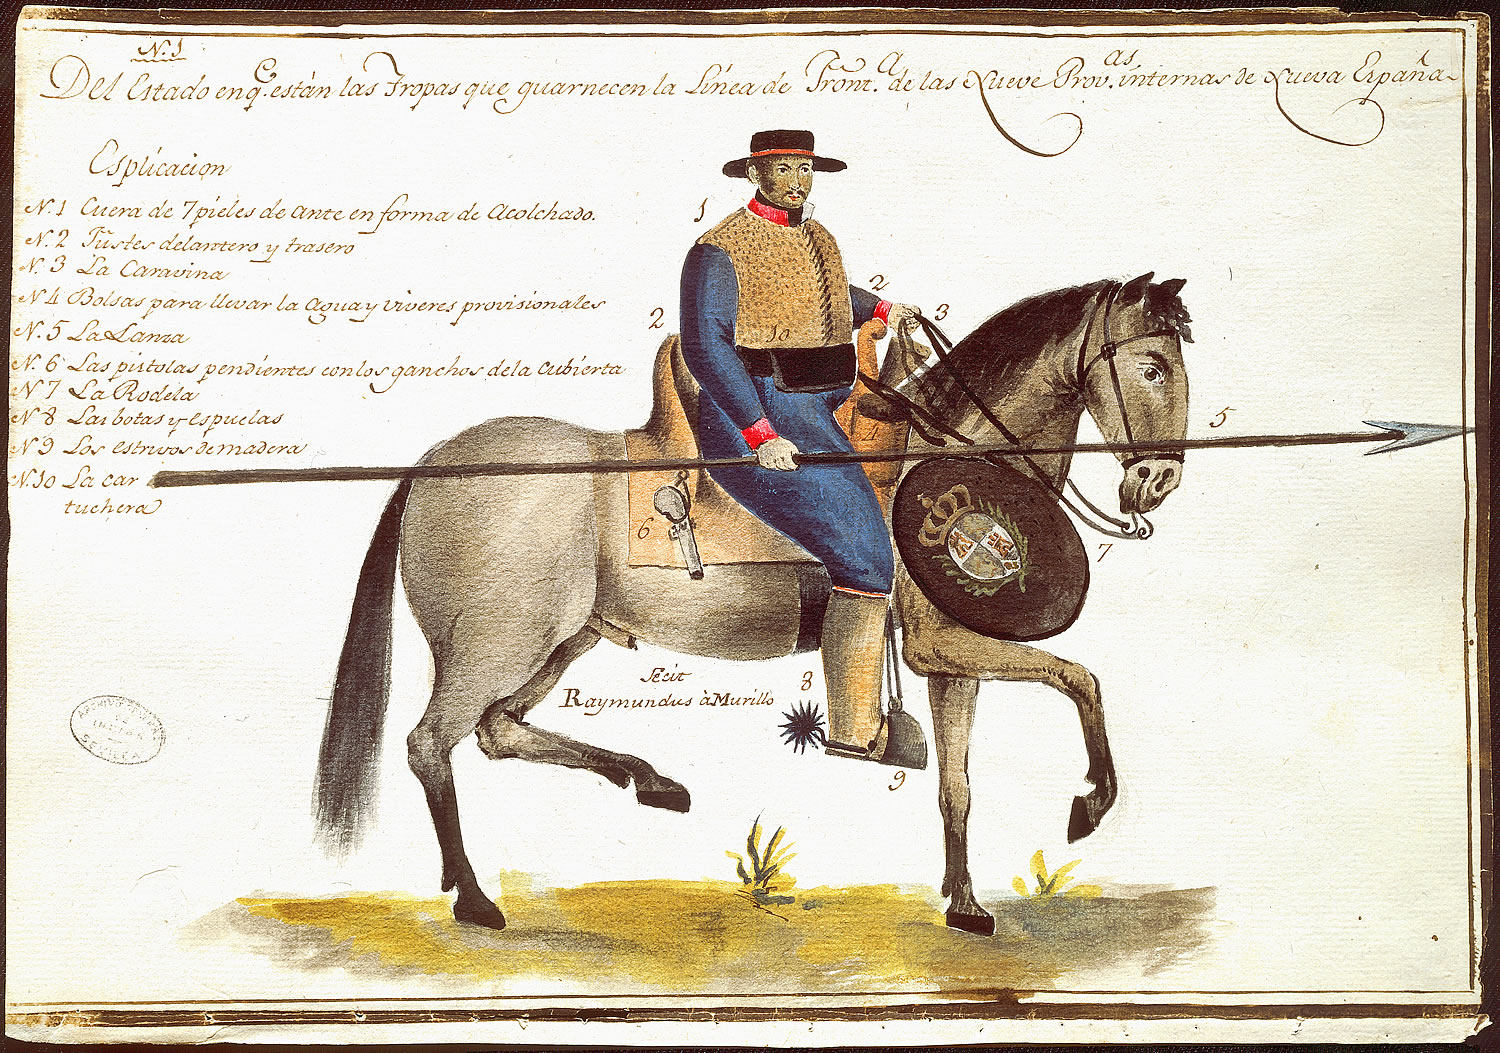 N. 1
Del Estado en q.e están las Tropas que guarnecen la Línea de Front.a de las Nueve Prov.as internas de Nueva España
Esplicacion
N. 1 Cuera de 7 pieles de ante en forma de Acolchado.
N. 2 Fustes delantero y trasero
N. 3 La Caravina
N. 4 Bolsas para llevar la Agua y viveres provisionales
N. 5 La Lanza
N. 6 Las pistolas pendientes con los ganchos de la Cubierta
N 7 La Rodela
N 8 Las botas y espuelas
N 9 Los estrivos de madera
N. 10 La car
tuchera
1
2
2
3
10
4
5
6
7
fecit
Raymundus à Murillo
8
9
ARCHIVO
INDIAS
SEVILLA